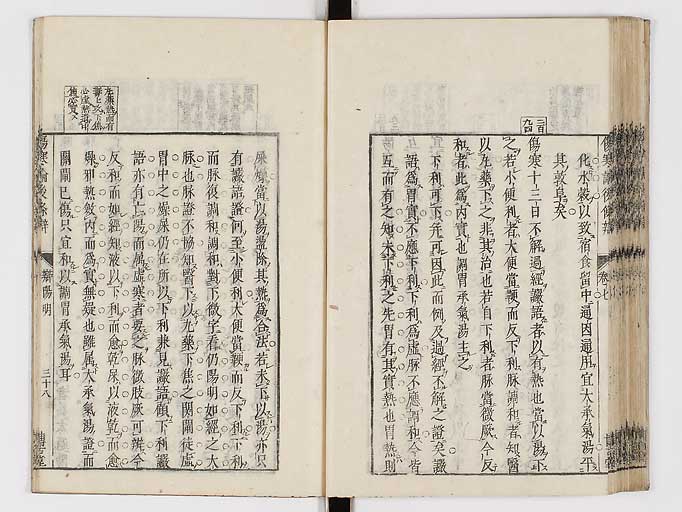 化水穀以致宿食留中通因通用宜大承氣湯平
其敦阜矣
二百九四
傷寒十三日不解過經讝語者以有熱也當以湯下
之若小便利者大便當鞕而反下利脉調和者知醫
以丸藥下之非其治也若自下利者脉當微厥今反
和者此爲內實也調胃承氣湯主之
下利可下
例及過經不解之證矣讝
語爲胃實不應下利下利爲虛脉不應調和今皆
互而有之知未下利之先胃有其實熱也胃熱則
屎燥當以湯盪除其熱爲合法若未下以湯亦只
有讝語證何至小便利大便當鞕而反下利下利
而脉復調和調和對下微字看仍陽明如經之大
脉也脉證不協知醫以丸藥下
胃中之燥屎仍在所以下利兼見讝語顧下利讝
語亦有亡陽而屬虛寒者要之脉微肢厥可辨今
反和而如經知液以下利而愈乾屎以液乾而愈
燥邪熱斂內而爲實無疑也雖屬大承氣湯證而
關閘已傷只宜和以調胃承氣湯耳
辨陽明
三十八
卷七